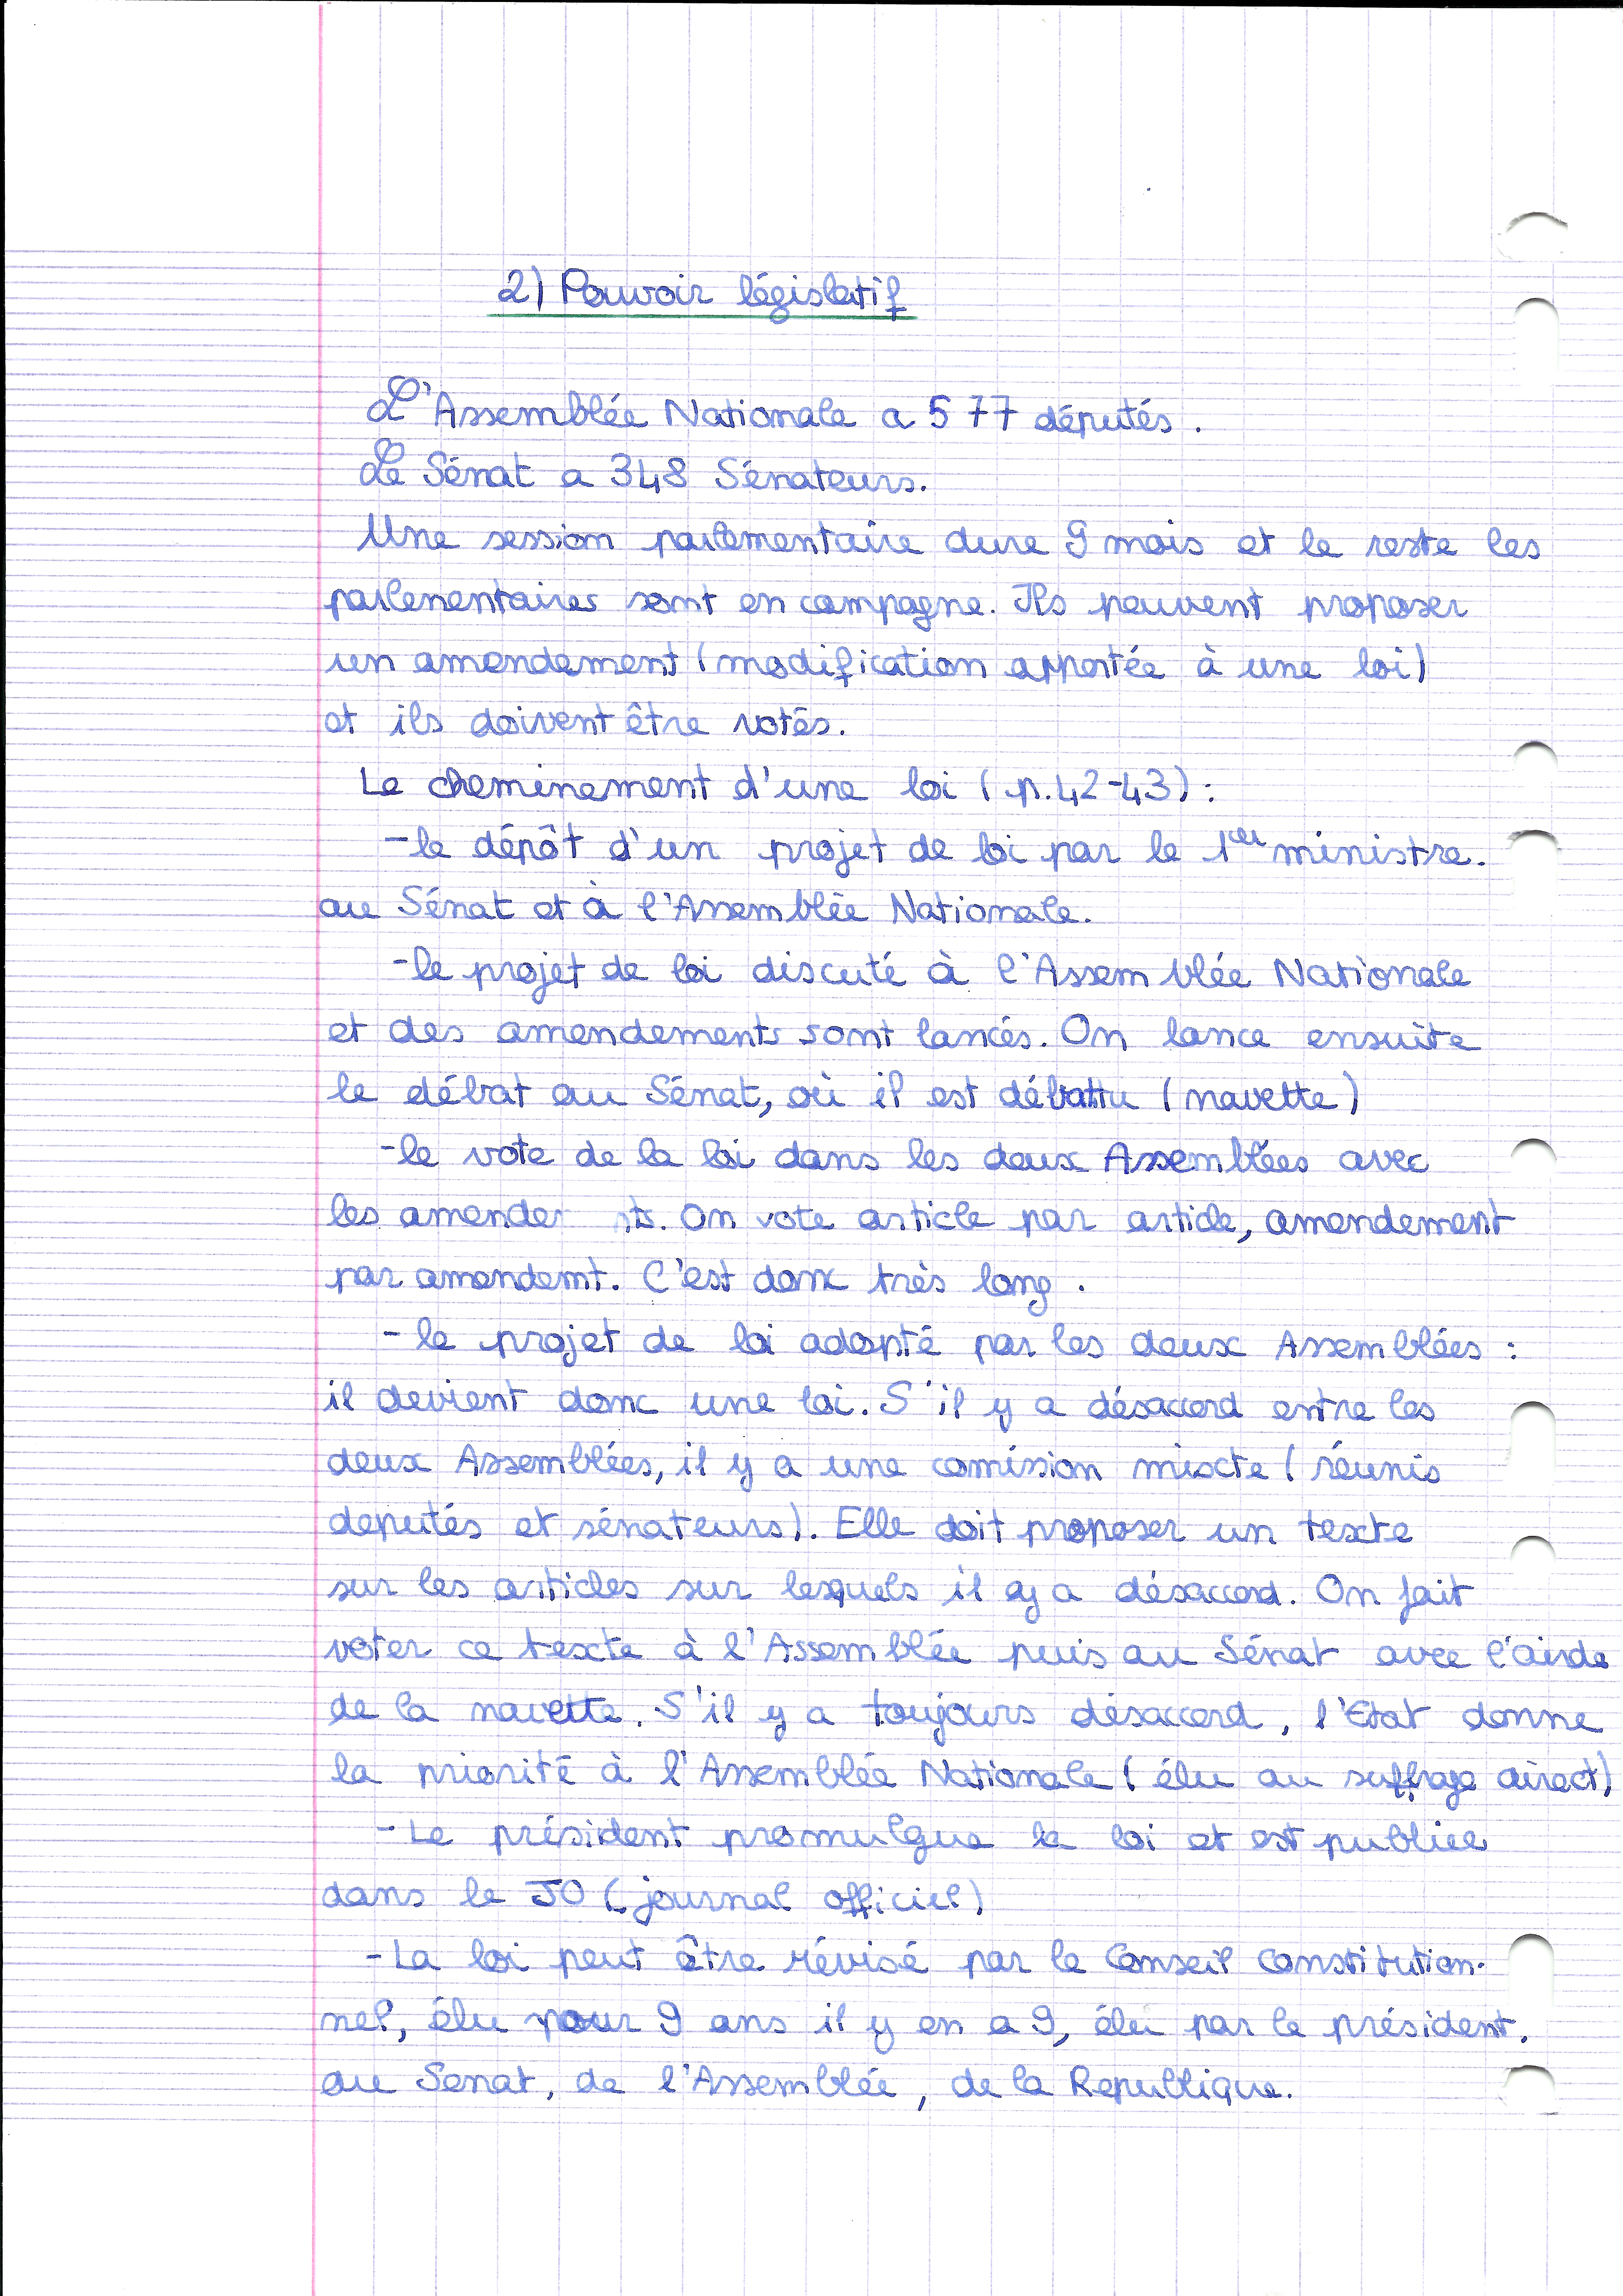 2) Pouvoir législatif
L'Assemblée Nationale a 577 députés.
Le Sénat a 348 Sénateurs.
Une session parlementaire dure 9 mois et le reste les
parlementaires sont en campagne. Ils peuvent proposer
un amendement (modification apportée à une loi)
et ils doivent être votés.
Le cheminement d'une loi (p.42-43) :
- le dépôt d'un projet de loi par le 1er ministre.
au Sénat et à l'Assemblée Nationale.
- le projet de loi discuté à l'Assemblée Nationale
et des amendements sont lancés. On lance ensuite
le débat au Sénat, où il est débattu (navette)
- le vote de la loi dans les deux Assemblées avec
les amende ts. On vote article par article, amendement
par amendemt. C'est donc très long.
- le projet de loi adopté par les deux Assemblées :
il devient donc une loi. S'il y a désaccord entre les
deux Assemblées, il y a une comission mixte (réunis
deputés et sénateurs). Elle doit proposer un texte
sur les articles sur lesquels il y a désaccord. On fait
voter ce texte à l'Assemblée puis au Sénat avec l'aide
de la navette. S'il y a toujours désaccord, l'Etat donne
la priorité à l'Assemblée Nationale (élu au suffrage direct)
- Le président promulgue la loi et est publiée
dans le JO (journal officiel)
- La loi peut être révisé par le Conseil Constitution-
nel, élu pour 9 ans il y en a 9, élu par le président,
du Senat, de l'Assemblée, de la Republique.